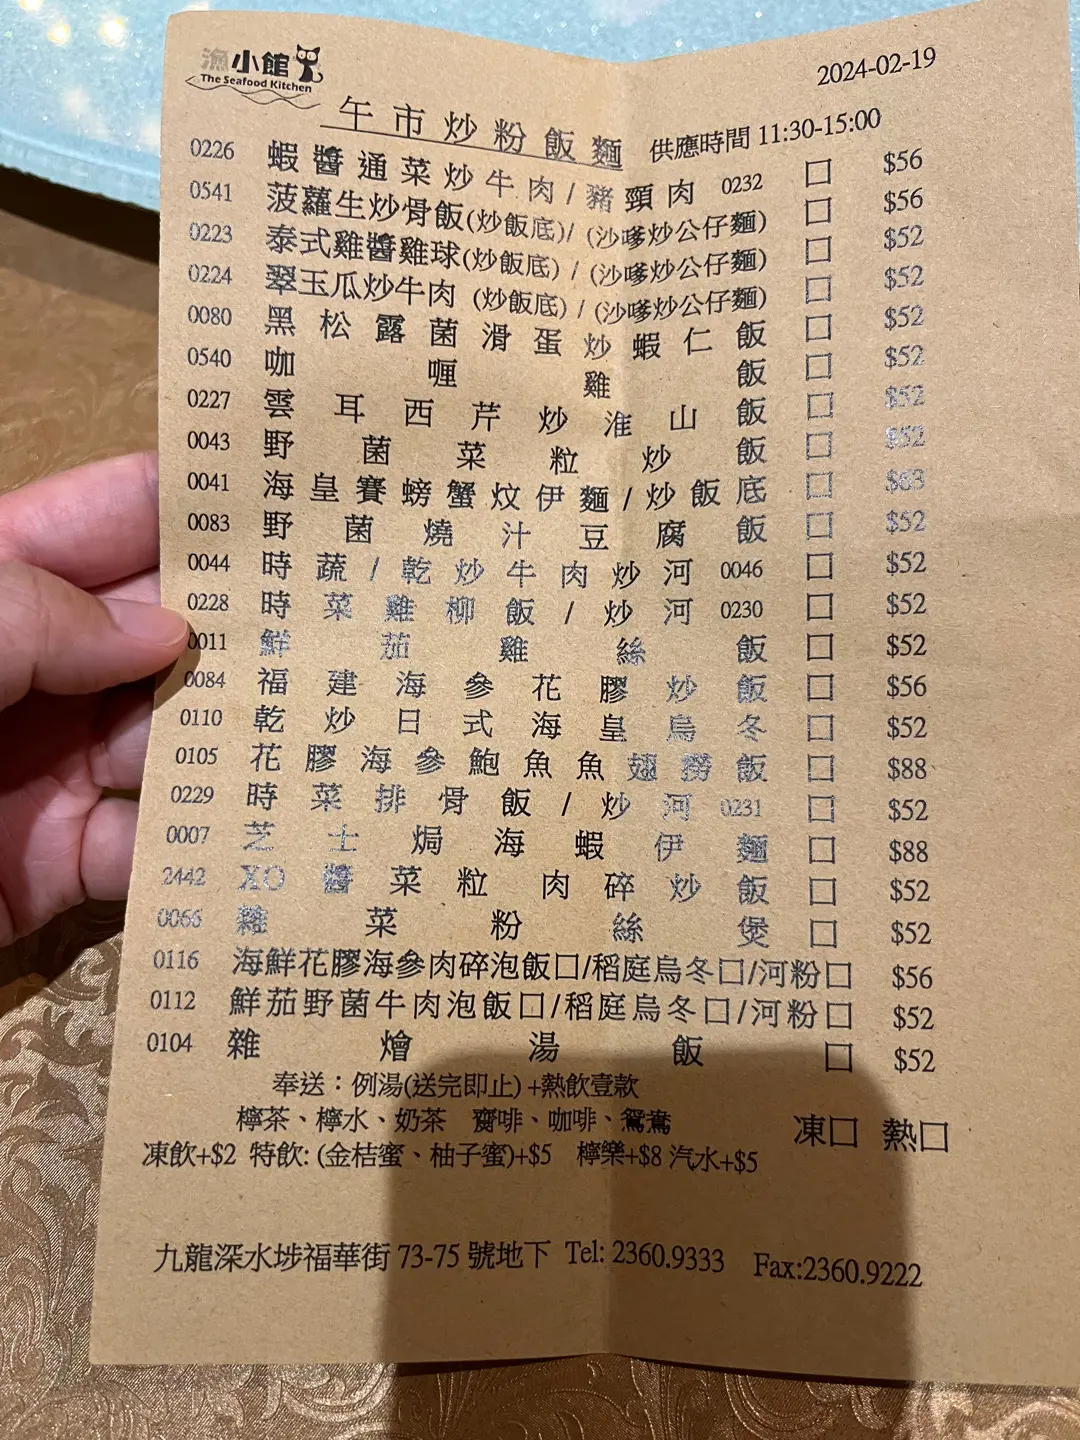 漁小館
The Seafood Kitchen
2024-02-19
午市炒粉飯麵 供應時間 11:30-15:00
0226 蝦醬通菜炒牛肉/豬頸肉 0232 □ $56
0541 菠蘿生炒骨飯(炒飯底)/ (沙嗲炒公仔麵) □ $56
0223 泰式雞醬雞球(炒飯底) / (沙嗲炒公仔麵) □ $52
0224 翠玉瓜炒牛肉 (炒飯底) / (沙嗲炒公仔麵) □ $52
0080 黑松露菌滑蛋炒蝦仁飯 □ $52
0540 咖喱雞飯 □ $52
0227 雲耳西芹炒淮山飯 □ $52
0043 野菌菜粒炒飯 □ $52
0041 海皇賽螃蟹炆伊麵/炒飯底 □ $63
0083 野菌燒汁豆腐飯 □ $52
0044 時蔬/乾炒牛肉炒河 0046 □ $52
0228 時菜雞柳飯/炒河 0230 □ $52
0011 鮮茄雞絲飯 □ $52
0084 福建海參花膠炒飯 □ $56
0110 乾炒日式海皇烏冬 □ $52
0105 花膠海參鮑魚魚翅撈飯 □ $88
0229 時菜排骨飯/炒河 0231 □ $52
0007 芝士焗海蝦伊麵 □ $88
2442 XO醬菜粒肉碎炒飯 □ $52
0066 雜菜粉絲煲 □ $52
0116 海鮮花膠海參肉碎泡飯□/稻庭烏冬□/河粉□ $56
0112 鮮茄野菌牛肉泡飯□/稻庭烏冬□/河粉□ $52
0104 雜燴湯飯 □ $52
奉送：例湯(送完即止) +熱飲壹款
檸茶、檸水、奶茶 齋啡、咖啡、鴛鴦 凍□ 熱□
凍飲+$2 特飲: (金桔蜜、柚子蜜)+$5 檸樂+$8 汽水+$5
九龍深水埗福華街 73-75 號地下 Tel: 2360.9333 Fax:2360.9222